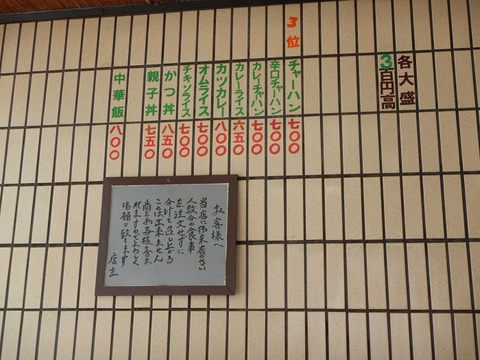 各大盛
3百円高
3位
チャーハン 七〇〇
辛口チャーハン 七〇〇
カレーチャーハン 七〇〇
カレーライス 六五〇
カツカレー 八〇〇
オムライス 七〇〇
チキンライス 七〇〇
かつ丼 八五〇
親子丼 七五〇
中華飯 八〇〇
お客様へ
当店に御来店のさい
人数分の食事
を注文せずに
分けて召し上がる
ことは出来ません
店主